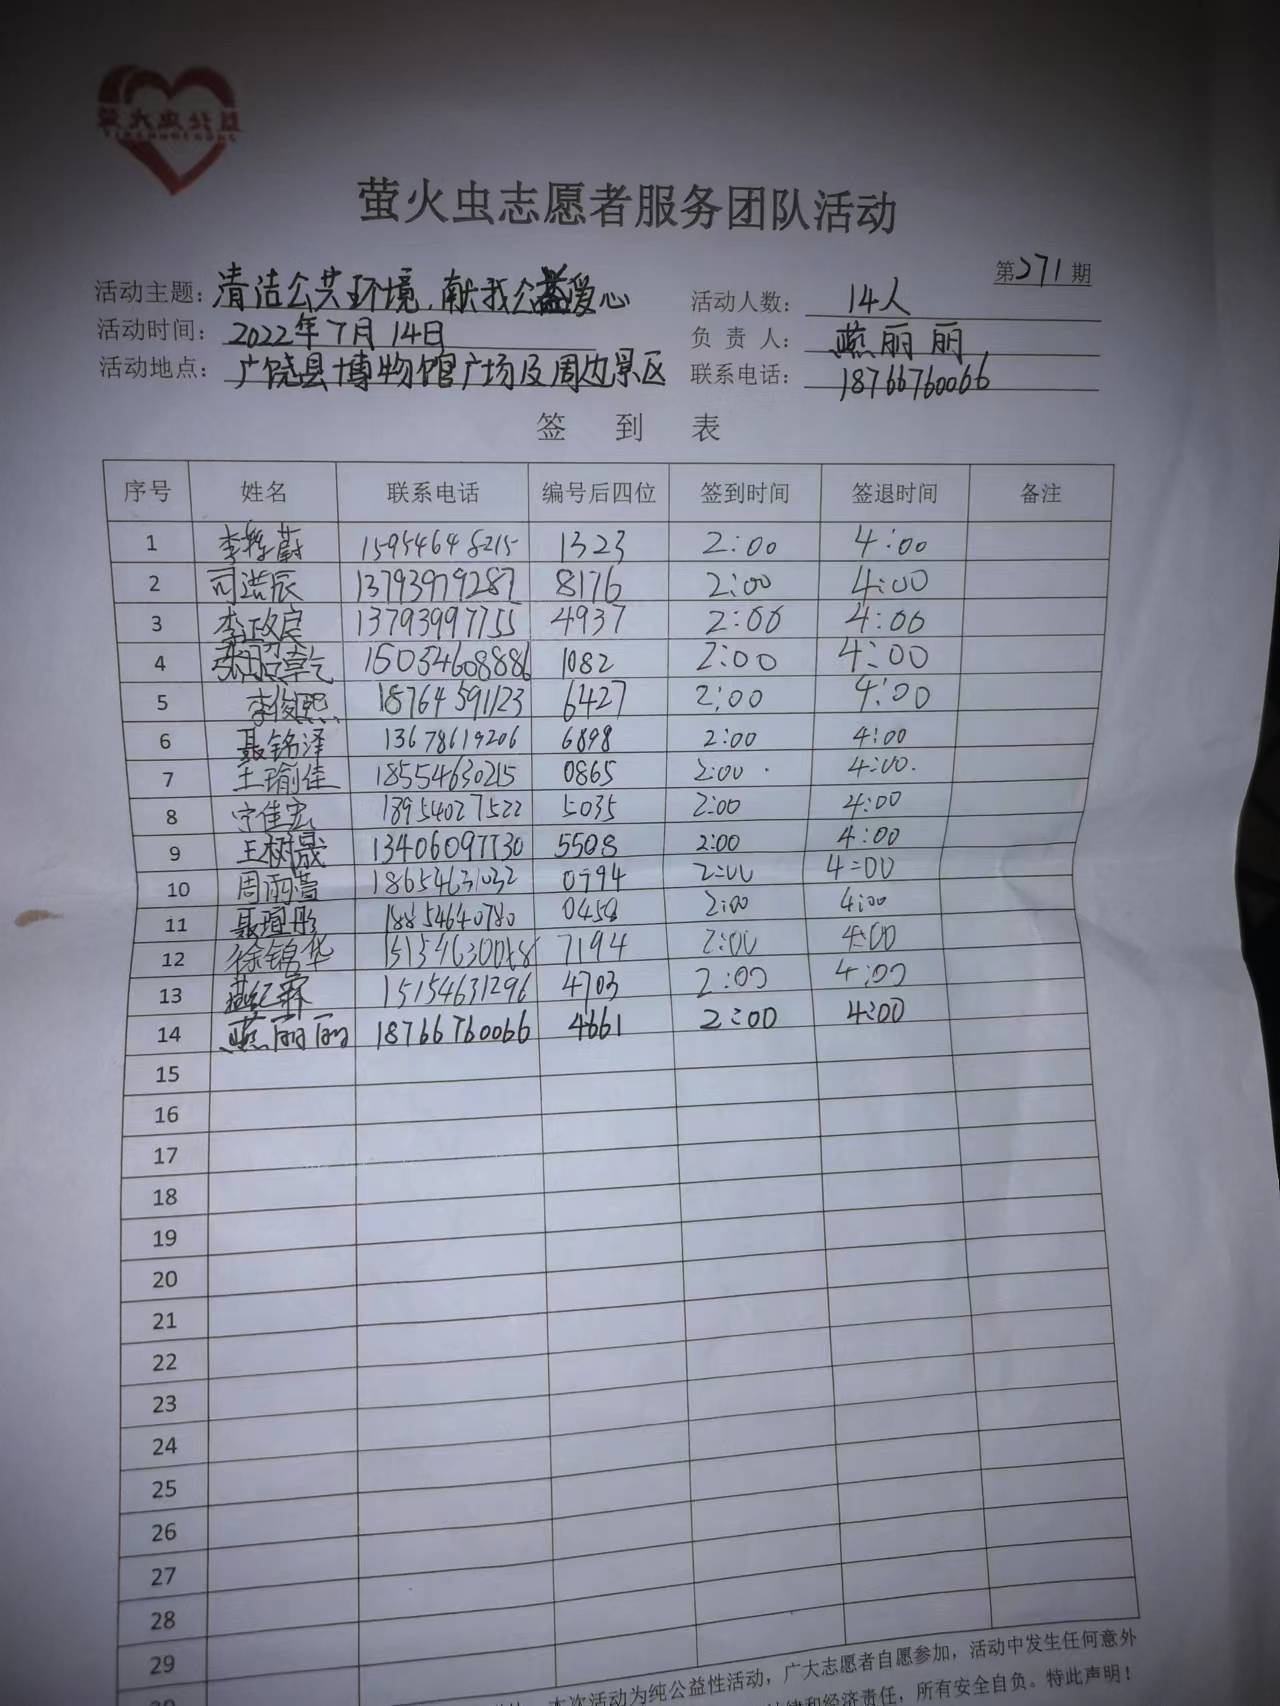 萤火虫公益
萤火虫志愿者服务团队活动
第271期
活动主题：清洁公共环境,献我公益爱心 活动人数：14人
活动时间：2022年7月14日 负责人：燕丽丽
活动地点：广饶县博物馆广场及周边景区 联系电话：18766760066
签到表
序号 姓名 联系电话 编号后四位 签到时间 签退时间 备注
1 李 蔚 15954648215 1323 2:00 4:00
2 司浩辰 13793979287 8176 2:00 4:00
3 李政宸 13793997755 4937 2:00 4:00
4 15034608886 1082 2:00 4:00
5 李俊熙 18764591123 6427 2:00 4:00
6 聂铭泽 13678619206 6898 2:00 4:00
7 王瑜佳 18554630215 0865 2:00 4:00
8 宁佳宏 18954027522 5035 2:00 4:00
9 王树晟 13406097730 5508 2:00 4:00
10 周雨萱 18654631032 2:00 4:00
11 聂瑄彤 18854640780 0458 2:00 4:00
12 徐锦华 7194 2:00 4:00
13 15154631296 4703 2:00 4:00
14 燕丽丽 18766760066 4661 2:00 4:00
15
16
17
18
19
20
21
22
23
24
25
26
27
28
29
本次活动为纯公益性活动，广大志愿者自愿参加，活动中发生任何意外
和经济责任，所有安全自负。特此声明！